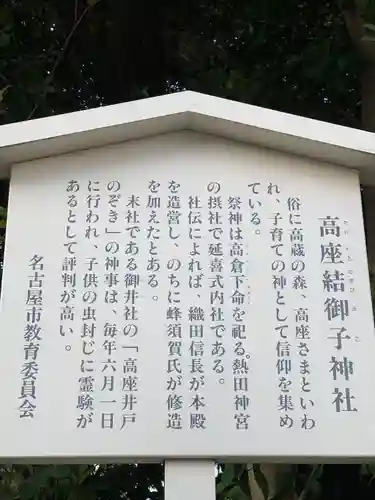 高座結御子神社
たかくらむすびみこ
俗に高蔵の森、高座さまといわ
れ、子育ての神として信仰を集め
ている。
祭神は高倉下命を祀る。熱田神宮
の摂社で延喜式内社である。
社伝によれば、織田信長が本殿
を造営し、のちに蜂須賀氏が修造
を加えたとある。
末社である御井社の「高座井戸
のぞき」の神事は、毎年六月一日
に行われ、子供の虫封じに霊験が
あるとして評判が高い。
名古屋市教育委員会